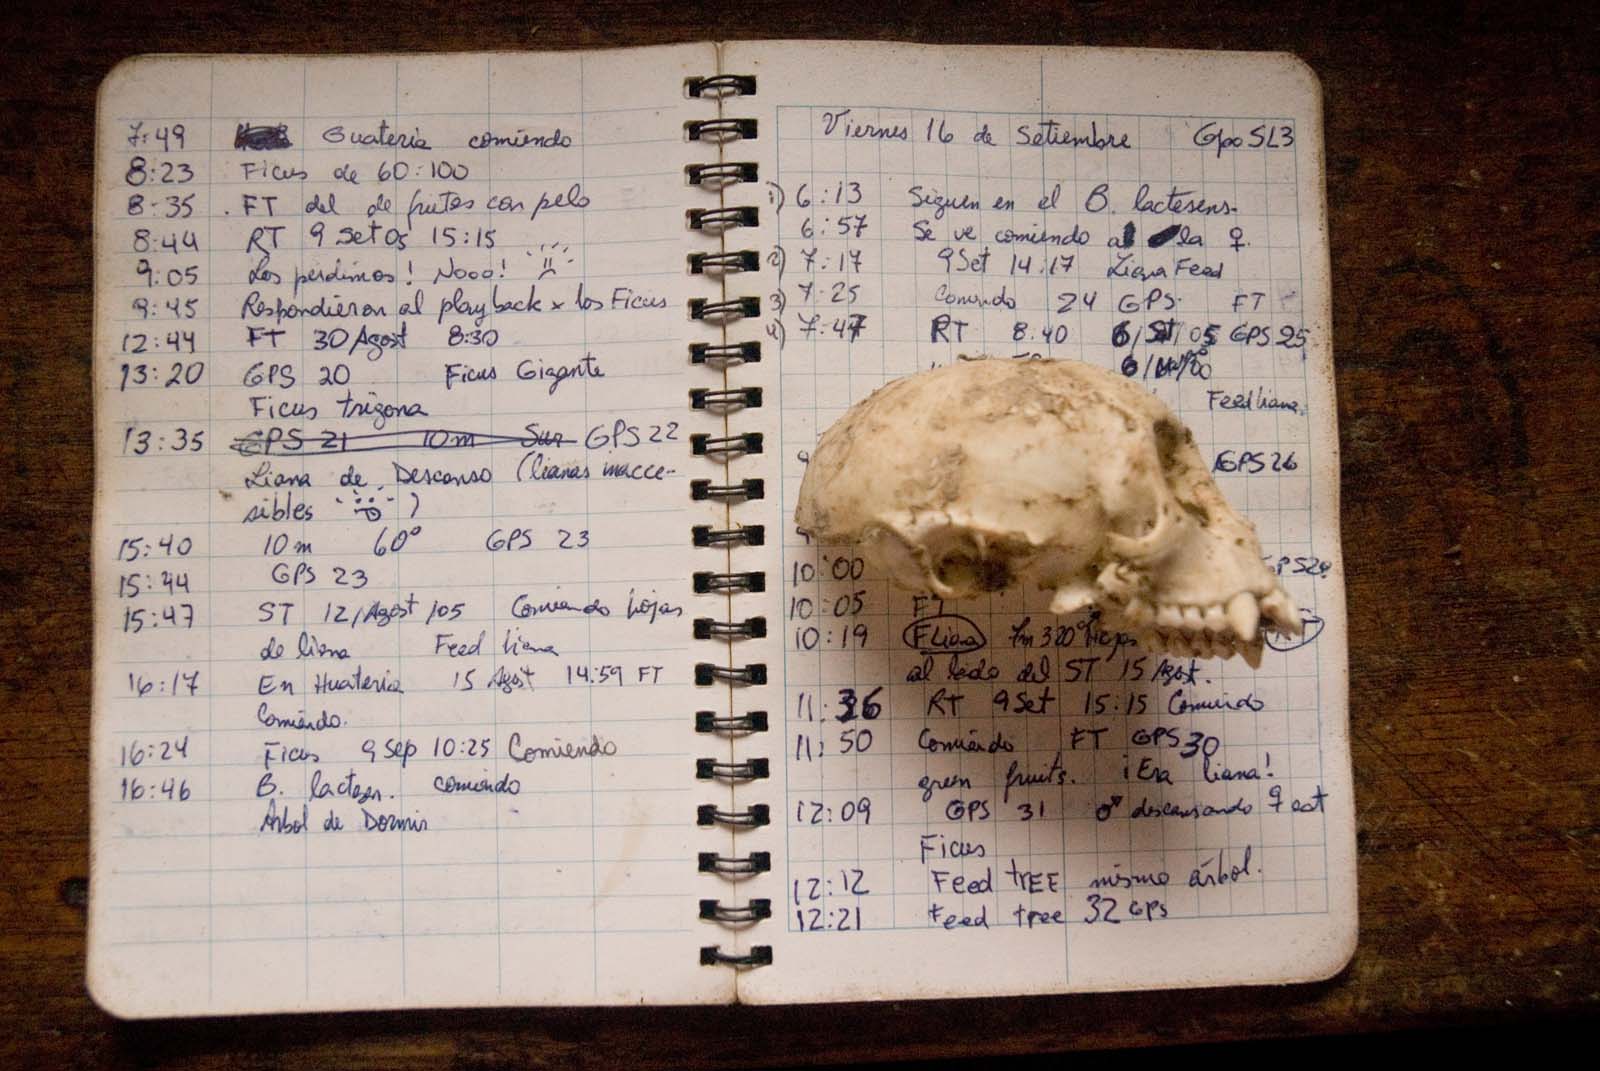 7:49 Guateria comiendo
8:23 Ficus de 60:100
8:35 . FT del de frutos con pelo
8:44 RT 9 Set 05 15:15
9:05 Los perdimos! Nooo!
9:45 Respondieron al playback x los Ficus
12:44 FT 30/Agost 8:30
13:20 GPS 20 Ficus Gigante
Ficus trigona
13:35 GPS 21 10m Sur GPS 22
Liana de Descanso (lianas inacce-
sibles )
15:40 10m 60° GPS 23
15:44 GPS 23
15:47 ST 12/Agost/05 Comiendo hojas
de liana Feed liana
16:17 En Huateria 15 Agst 14:59 FT
Comiendo.
16:24 Ficus 9 Sep 10:25 Comiendo
16:46 B. lactesn. comiendo
Arbol de Dormir
Viernes 16 de Setiembre Gpo SL3
1) 6:13 Siguen en el B. lactesens.
6:57 Se ve comiendo a la ♀.
2) 7:17 9 Set 14:17 Liana Feed
3) 7:25 Comiendo 24 GPS. FT
4) 7:47 RT 8:40 6/Set/05 GPS 25
Feed liana.
GPS 26
10:00
10:05 FT
10:19 F Liana 7m 320° Hojas
al lado del ST 15 Agst.
11:36 RT 9 Set 15:15 Comiendo
11:50 Comiendo FT GPS 30
green fruits. ¡Era liana!
12:09 GPS 31 ♂ descansando ♀ eat
Ficus
12:12 Feed tREE mismo árbol.
12:21 Feed tree 32 GPS